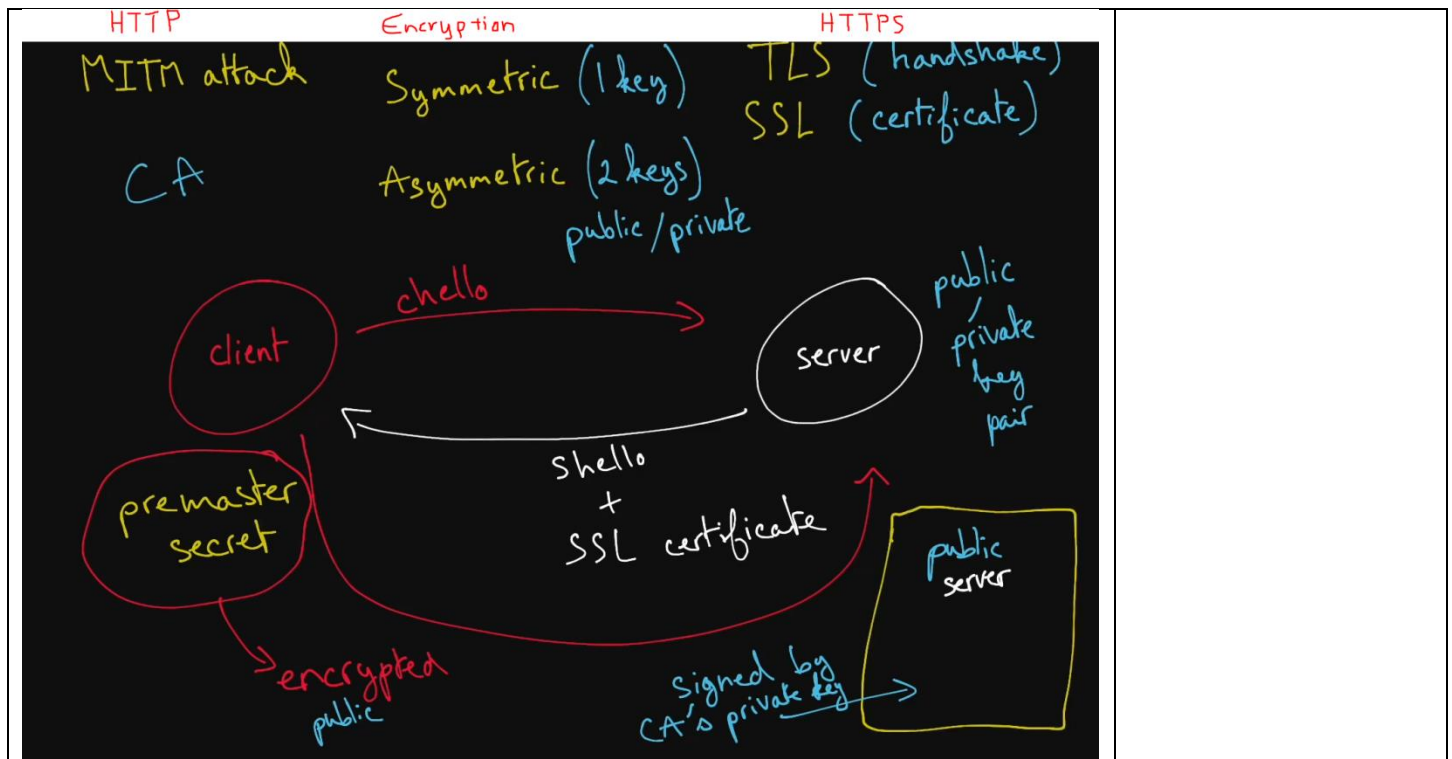 HTTP Encryption HTTPS
MITM attack Symmetric (1 key) TLS (handshake)
SSL (certificate)
CA Asymmetric (2 keys)
public/private
chello
client
server
public
/
private
key
pair
shello
+
SSL certificate
premaster
secret
encrypted
public
public
server
signed by
CA's private key